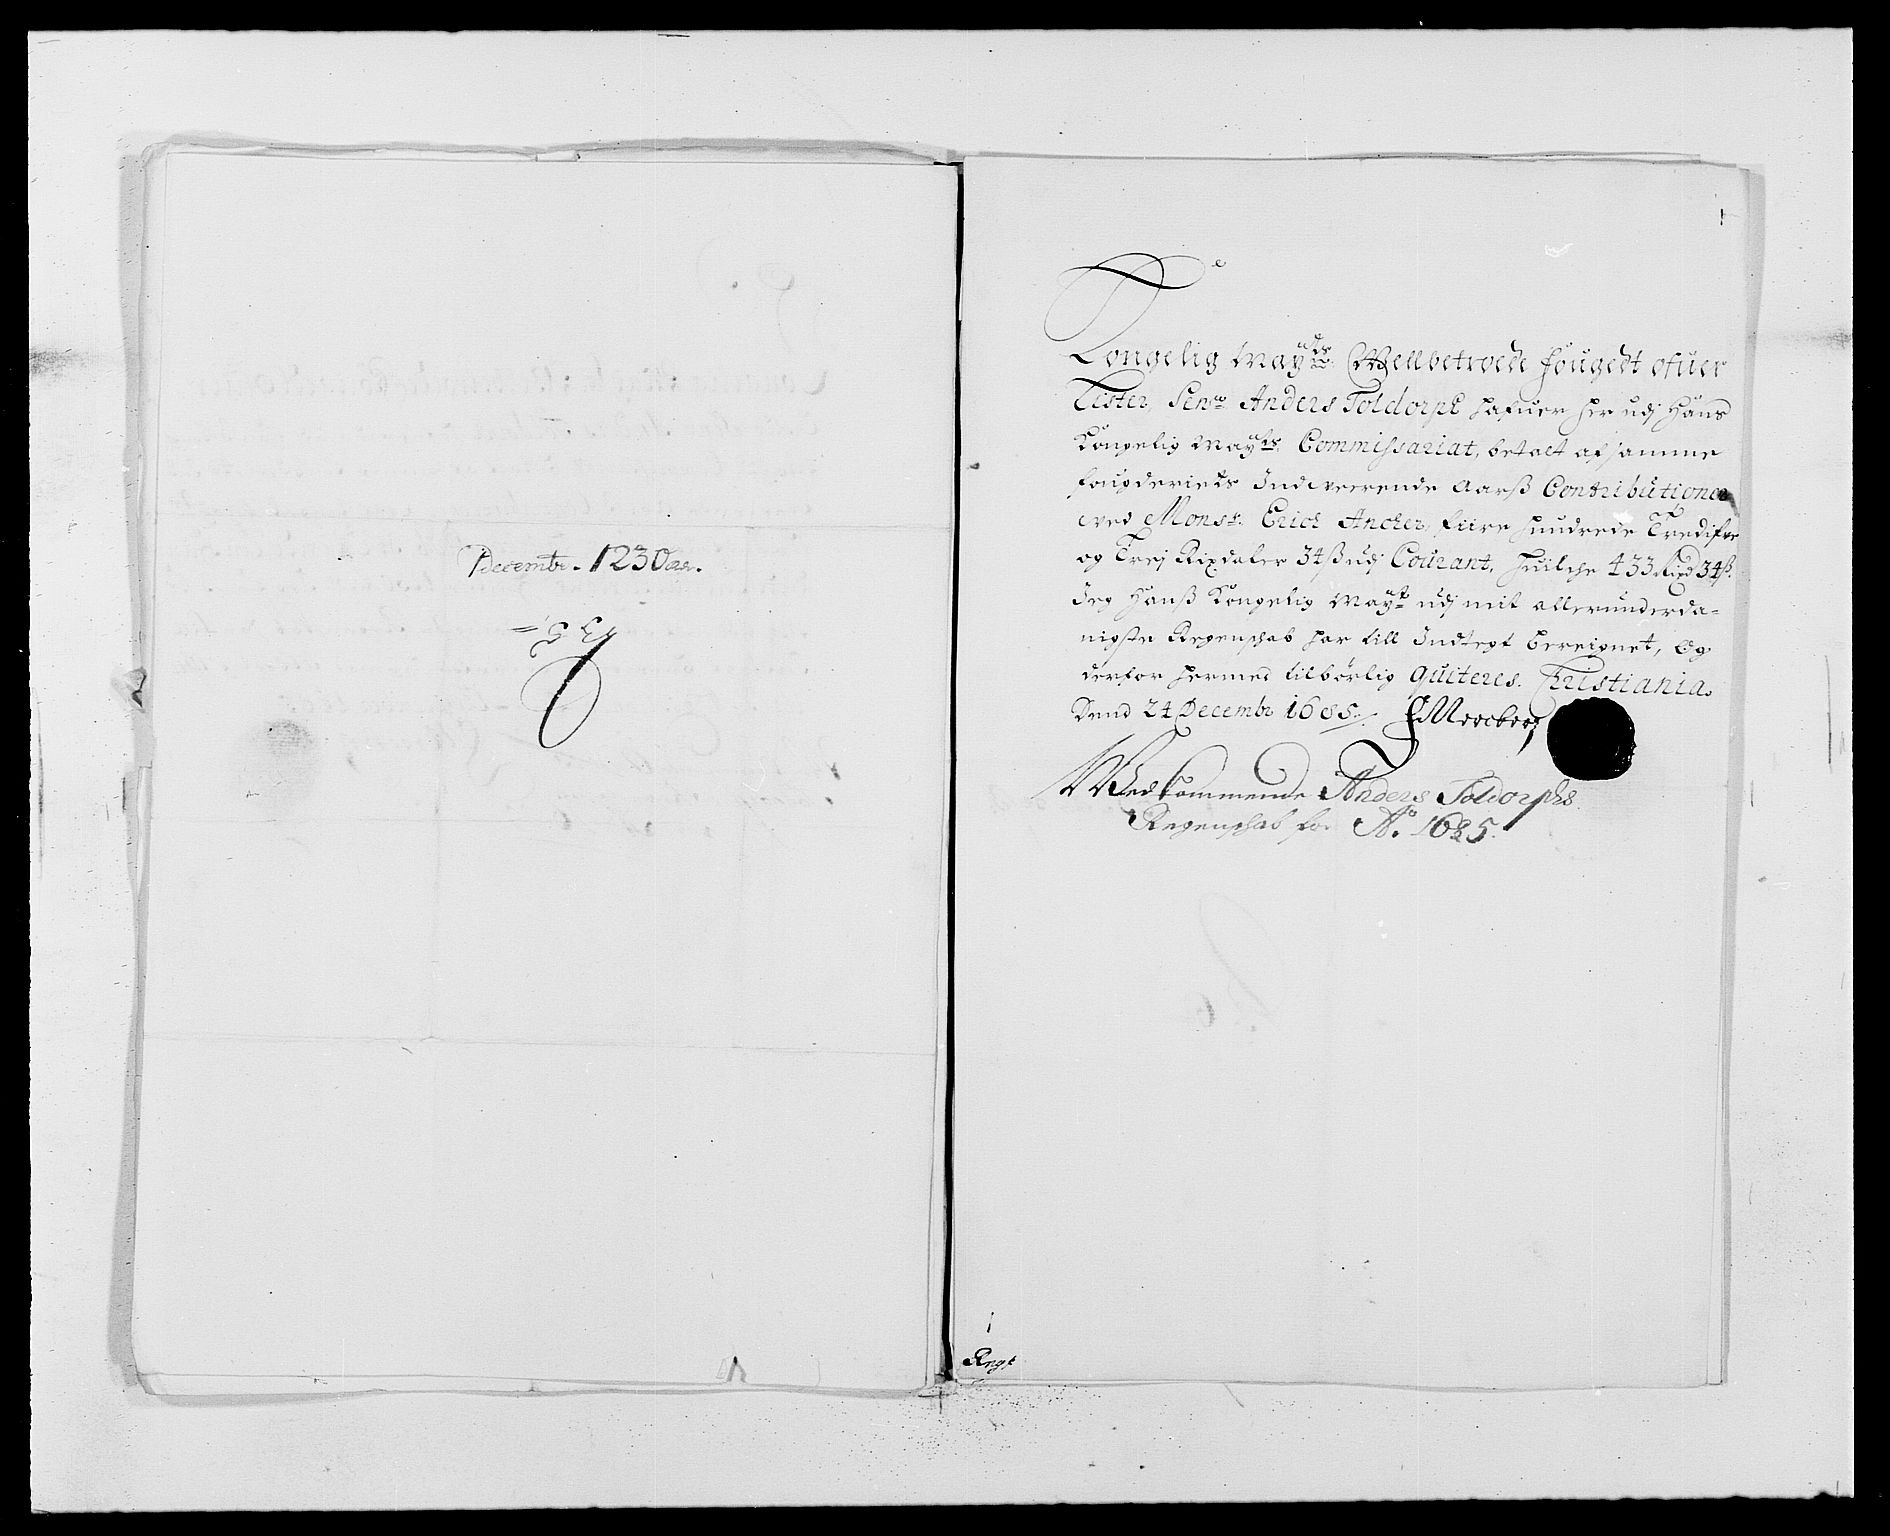 Decembr. 1230
Kongelig Maytds. Wellbetroede fougedt ofuer
Lister, Senr. Anders Toldorph hafuer her udj Hans
Kongelig Mayts. Commissariat, betalt af samme
fougderiets Indeverende Aarß Contributioner
ved Monsr. Erich Ancher, fiire hundrede Tredifve
og Trej Rixdaler 34 ß udj Courant, huilche 433 Rixd 34 ß.
Jeg Hanß Kongelig Mayt. udj mit allerunderda-
nigste Regenschab har till Indtegt bereignet, Og
derfor hermed tilbörlig quiteres. Christiania.
Dend 24 Decembr 1685.
Vedkommende Anders Toldorphs
Regenschab for Ao. 1685.
1